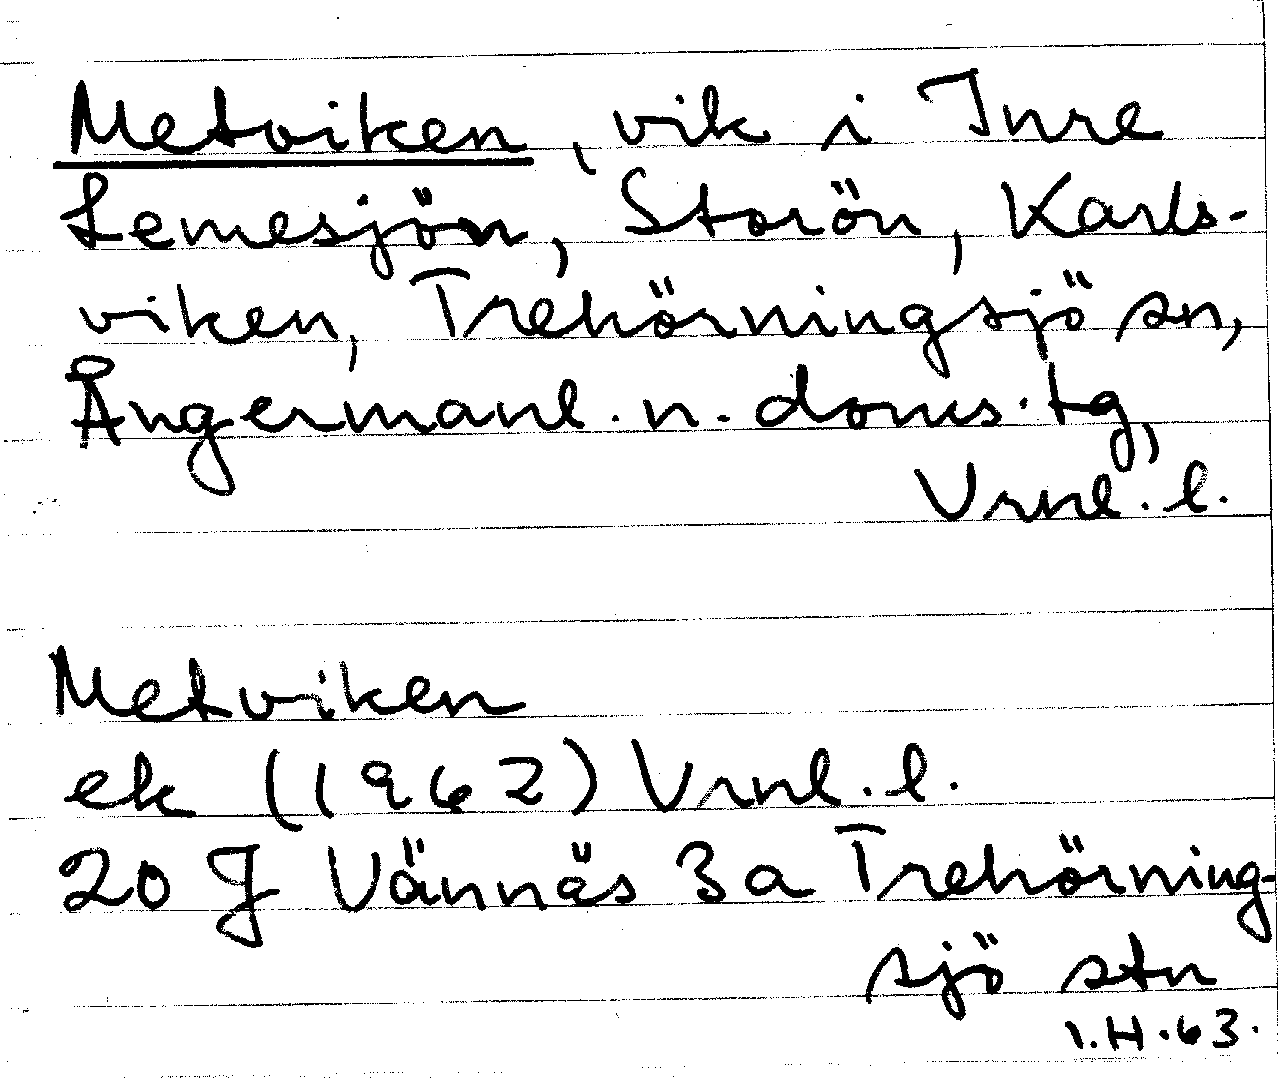 Metviken, vik i Inre
Lemesjön, Storön, Karls-
viken, Trehörningsjö sn,
Ångermanl. n. doms. tg,
Vrnl. l.
Metviken
ek (1962) Vrnl. l.
20 J Vännäs 3a Trehörning-
sjö stn
I.H.63.